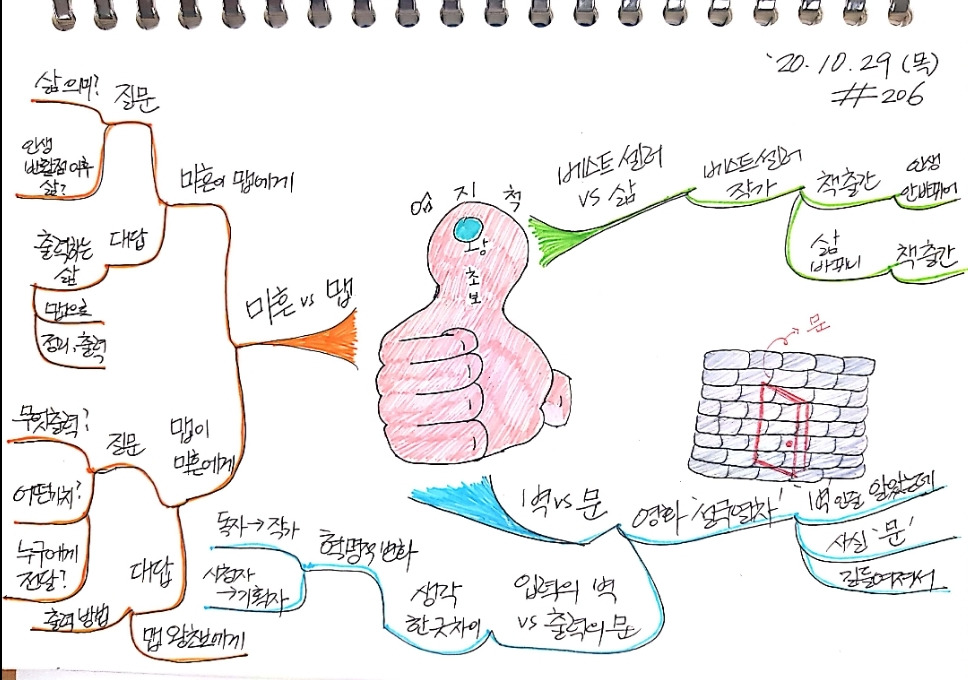 '20.10.29 (목)
#206
엄 지 척
왕
초
보
베스트셀러
vs 삶
베스트셀러
작가
책출간
인생
안바뀌어
삶
바뀌니
책출간
문
벽 vs 문
영화 '설국열차'
벽인줄 알았는데
사실 '문'
길들여져서
입력의 벽
vs 출력의 문
생각
한끗차이
혁명적 변화
독자→작가
시험자
→기획자
미혼 vs 맵
미혼이 맵에게
질문
삶 의미?
인생
반환점 이후
삶?
대답
출력하는
삶
맵으로
정리, 출력
맵이
미혼에게
질문
무엇출력?
어떤가치?
누구에게
전달?
대답
출력 방법
맵 왕초보에게